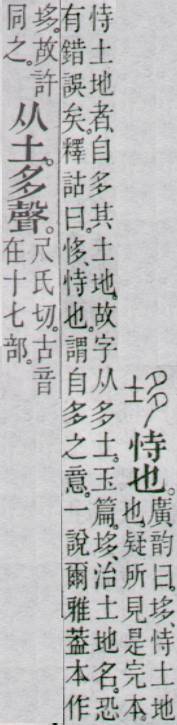 恃也。廣韵曰。垑、恃土地
也。疑所見是完本
恃土地者、自多其土地。故字从多土。玉篇。垑、治土地名。恐
有錯誤矣。釋詁曰。恀、恃也。謂自多之意。一說爾雅葢本作
垑。故許
同之。
从土。多聲。尺氏切。古音
在十七部。